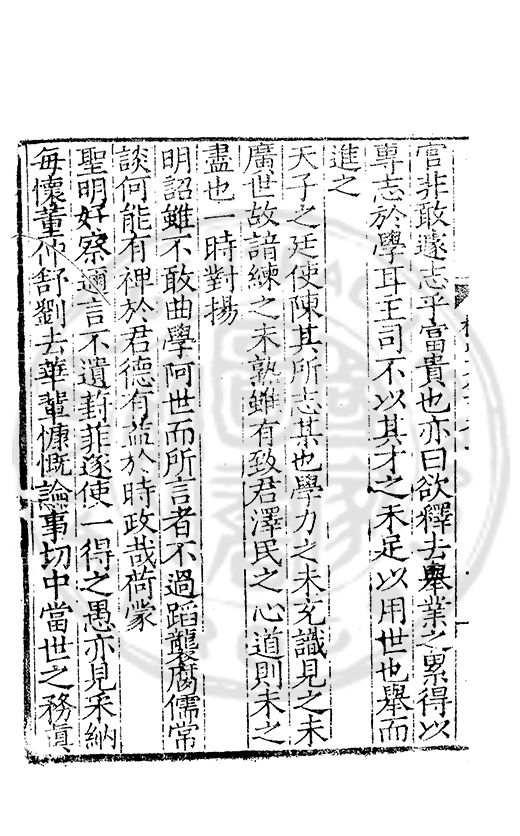 官非敢遂志乎富貴也亦曰欲釋去舉業之累得以
專志於學耳主司不以其才之未足以用世也舉而
進之
天子之廷使陳其所志某也學力之未充識見之未
廣世故諳練之未熟雖有致君澤民之心道則未之
盡也一時對揚
明詔雖不敢曲學阿世而所言者不過蹈襲腐儒常
談何能有裨於君德有益於時政哉荷蒙
聖明好察邇言不遺葑菲遂使一得之愚亦見采納
每懷董仲舒劉去華輩慷慨論事切中當世之務眞